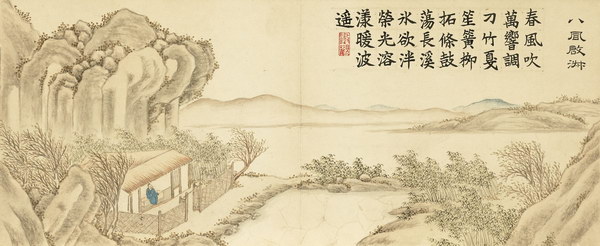 八風啟
春風吹
萬響調
刁竹戛
笙簧柳
拓條鼓
蕩長溪
氷欲泮
榮光溶
漾暖波
遙